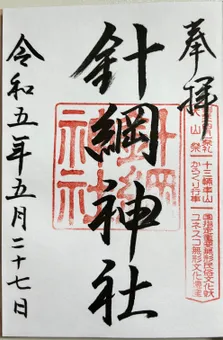 奉拝
十三輌車山
からくり行事
国指定重要無形民俗文化財
ユネスコ無形文化遺産
針綱神社
針綱神社
令和五年五月二十七日